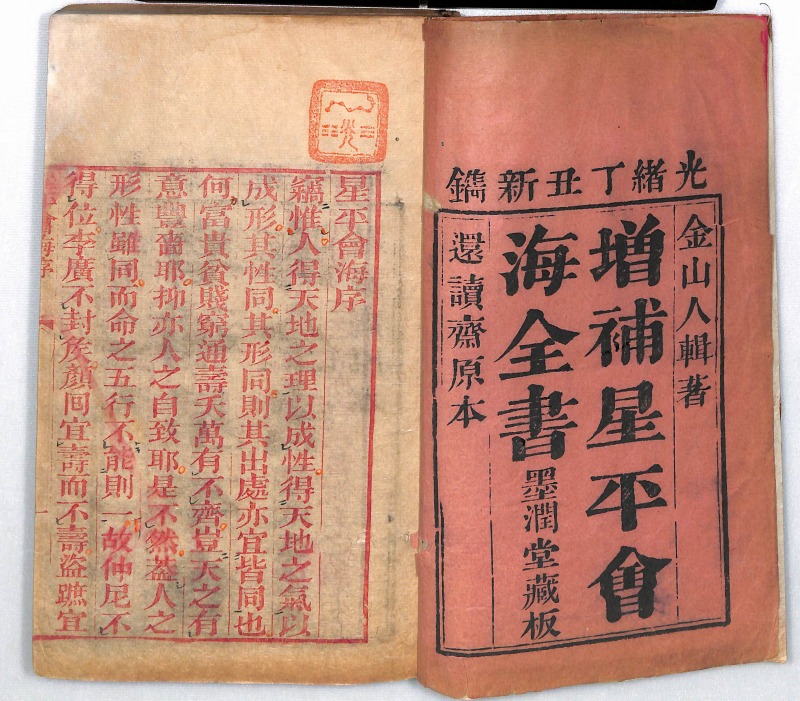 光緒丁丑新鐫
金山人輯著
增補星平會
海全書
墨潤堂藏板
還讀齋原本
星平會海序
竊惟人得天地之理以成性得天地之氣以
成形其性同其形同則其出處亦宜皆同也
何富貴貧賤窮通壽夭萬有不齊豈天之有
意豐嗇耶抑亦人之自致耶是不然葢人之
形性雖同而命之五行不能則一故仲尼不
得位李廣不封矦顏回宜壽而不壽盜蹠宜
會海序
一